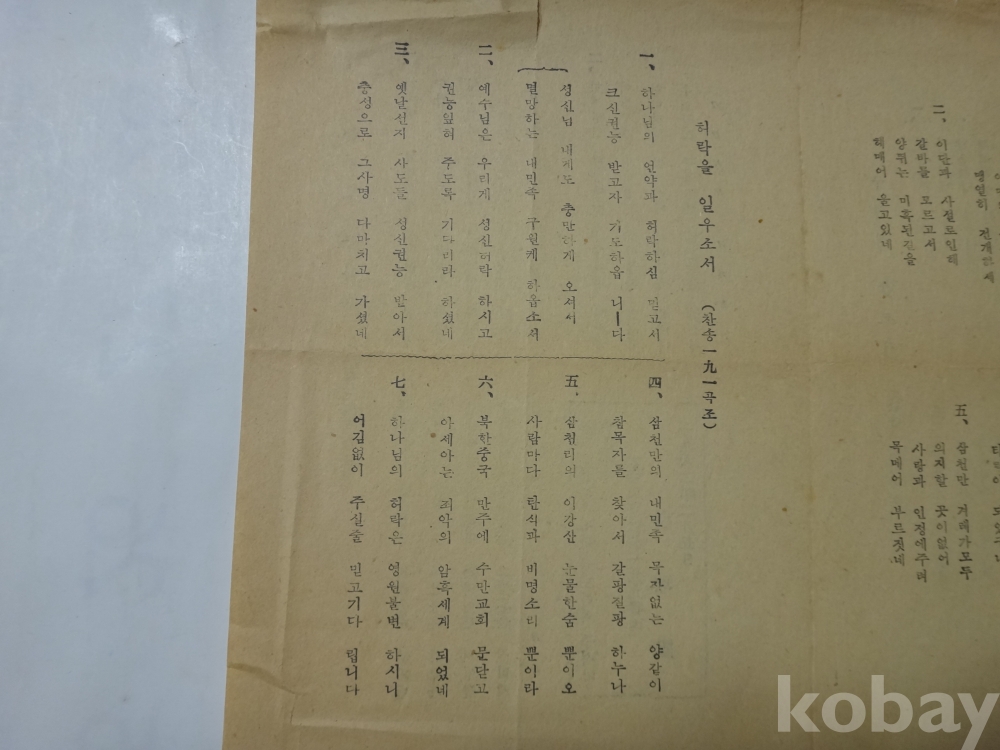 二、 이단과 사설로인해
갈바를 모르고서
미혹된길을
헤매어 울고있네
五、 삼천만 겨레가모두
의지할 곳이없어
사랑과 인정에주려
목메어 부르짓네
허락을 일우소서 (찬송一九一곡조)
一、 하나님의 언약과 허락하심 믿고서
크신권능 받고자 기도하옵 니ㅣ다
성신님 내게도 충만하게 오셔서
멸망하는 내민족 구원케 하옵소서
二、 예수님은 우리게 성신허락 하시고
권능잎혀 주도록 기다리라 하셨네
三、 옛날선지 사도들 성신권능 받아서
충성으로 그사명 다마치고 가셨네
四、 삼천만의 내민족 목자없는 양같이
참목자를 찾아서 갈광질광 하누나
五、 삼천리의 이강산 눈물한숨 뿐이오
사람마다 탄식과 비명소리 뿐이라
六、 북한중국 만주에 수만교회 문닫고
아세아는 죄악의 암흑세계 되었네
七、 하나님의 허락은 영원불변 하시니
어김없이 주실줄 믿고기다 립니다
kobay